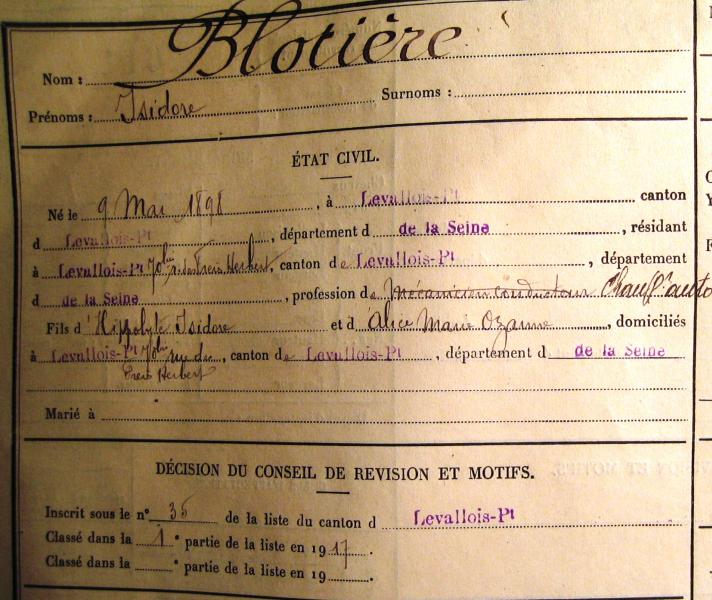 Nom : Blotière
Prénoms : Isidore Surnoms :
ÉTAT CIVIL.
Né le 9 Mai 1898, à Levallois-Pt canton
d Levallois-Pt, département d de la Seine, résidant
à Levallois-Pt 70bis r. des Frères Herbert, canton de Levallois-Pt, département
d de la Seine, profession de Mécanicien conducteur Chauffr auto
Fils d'Hippolyte Isidore et d Alice Marie Ozanne, domiciliés
à Levallois-Pt 70bis rue des, canton de Levallois-Pt, département d de la Seine
Frères Herbert
Marié à
DÉCISION DU CONSEIL DE REVISION ET MOTIFS.
Inscrit sous le n° 35 de la liste du canton d Levallois-Pt
Classé dans la 1 e partie de la liste en 1917.
Classé dans la e partie de la liste en 19 .